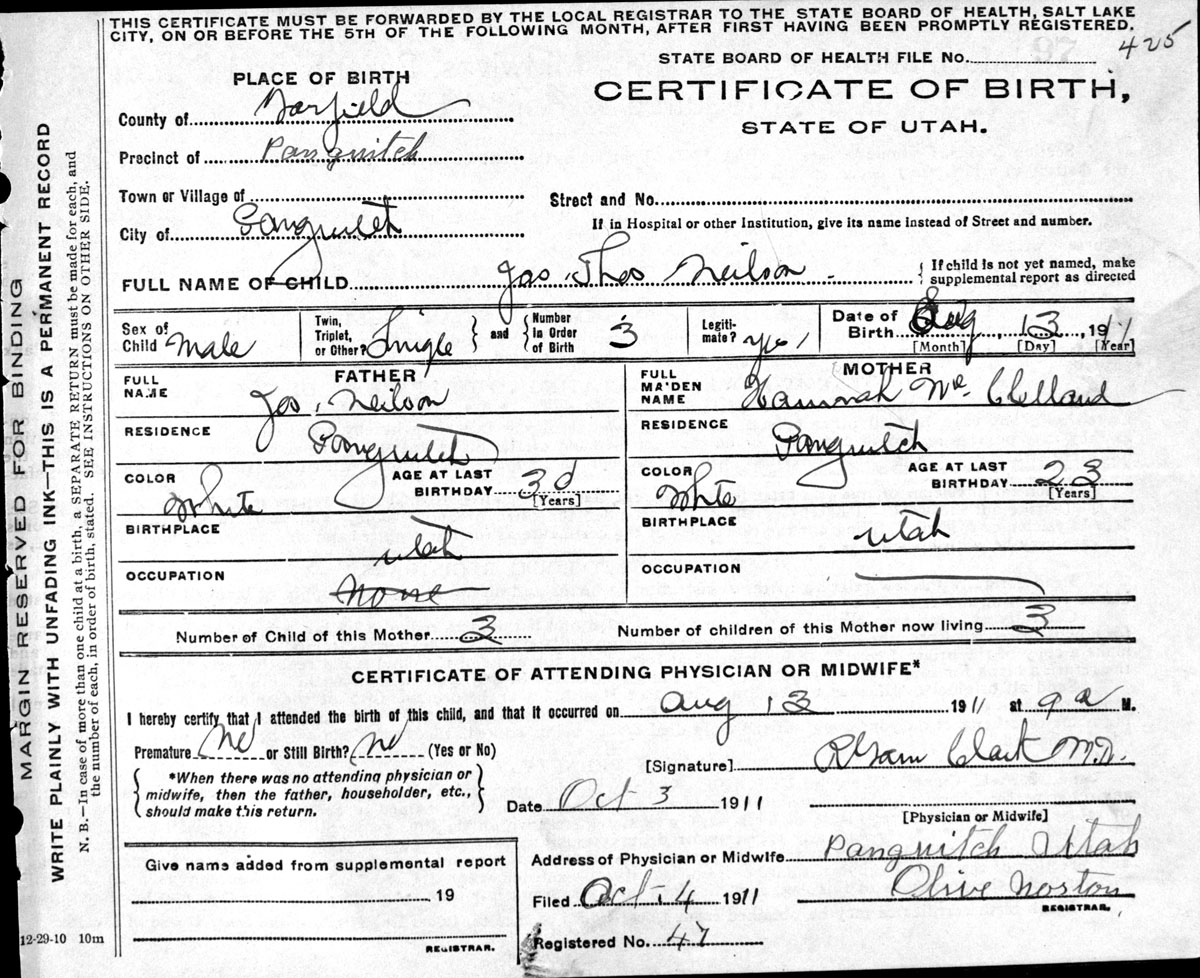 THIS CERTIFICATE MUST BE FORWARDED BY THE LOCAL REGISTRAR TO THE STATE BOARD OF HEALTH, SALT LAKE
CITY, ON OR BEFORE THE 5TH OF THE FOLLOWING MONTH, AFTER FIRST HAVING BEEN PROMPTLY REGISTERED.
425
STATE BOARD OF HEALTH FILE No.
PLACE OF BIRTH
CERTIFICATE OF BIRTH,
STATE OF UTAH.
County of Garfield
Precinct of Panguitch
Town or Village of
Street and No.
City of Panguitch
If in Hospital or other Institution, give its name instead of Street and number.
FULL NAME OF CHILD Jas. Thos Neilson
If child is not yet named, make
supplemental report as directed
Sex of Child Male
Twin, Triplet, or Other? Single
and
Number in Order of Birth 3
Legiti-mate? yes
Date of Birth Aug 13, 1911
[Month] [Day] [Year]
FATHER
FULL NAME Jas. Neilson
RESIDENCE Panguitch
COLOR White
AGE AT LAST BIRTHDAY
[Years]
BIRTHPLACE Utah
OCCUPATION None
MOTHER
FULL MAIDEN NAME Hannah Mc Clelland
RESIDENCE Panguitch
COLOR White
AGE AT LAST BIRTHDAY 23
[Years]
BIRTHPLACE Utah
OCCUPATION
Number of Child of this Mother 3
Number of children of this Mother now living 3
CERTIFICATE OF ATTENDING PHYSICIAN OR MIDWIFE*
I hereby certify that I attended the birth of this child, and that it occurred on Aug 13 1911 at 9 a M.
Premature No or Still Birth? No (Yes or No)
*When there was no attending physician or
midwife, then the father, householder, etc.,
should make this return.
[Signature] Clark M.D.
Date Oct 3 1911
[Physician or Midwife]
Give name added from supplemental report
19
REGISTRAR.
Address of Physician or Midwife Panguitch Utah
Filed Oct. 4 1911
Olive Norton
REGISTRAR.
Registered No. 47
12-29-10 10m
MARGIN RESERVED FOR BINDING
WRITE PLAINLY WITH UNFADING INK—THIS IS A PERMANENT RECORD
N. B.—In case of more than one child at a birth, a SEPARATE RETURN must be made for each, and
the number of each, in order of birth, stated. SEE INSTRUCTIONS ON OTHER SIDE.